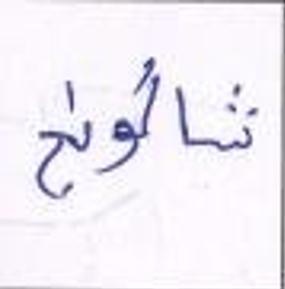 شالونج